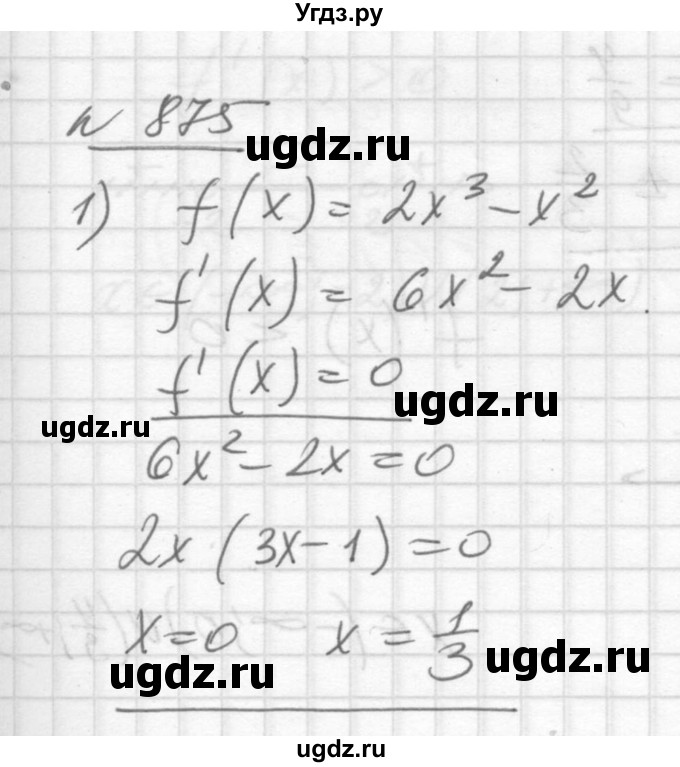 Угдз.ру
№ 875
ugdz.ru
1) f(x) = 2x³ - x²
f'(x) = 6x² - 2x.
f'(x) = 0
ugdz.ru
ugdz.ru
6x² - 2x = 0
2x (3x - 1) = 0
x = 0 x = 1/3
ugdz.ru
ugdz.ru
ugdz.ru